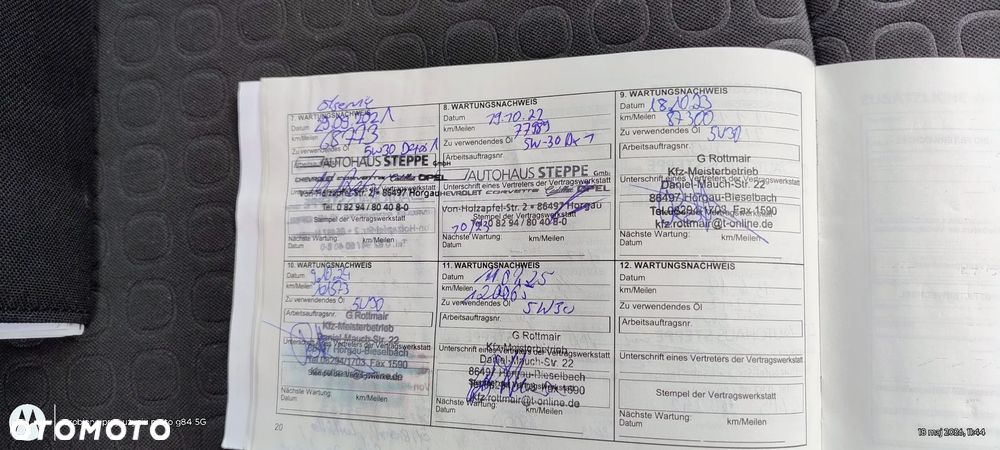 7. WARTUNGSNACHWEIS
Datum 29.09.2021
km/Meilen 68773
Zu verwendendes Öl 5W30 Dexos 1
Arbeitsauftragsnr.
AUTOHAUS STEPPE GmbH
CHEVROLET OPEL
Von-Holzapfel-Str. 2 • 86497 Horgau
Tel. 0 82 94 / 80 40 8-0
Stempel der Vertragswerkstatt
Nächste Wartung:
Datum km/Meilen
8. WARTUNGSNACHWEIS
Datum 19.10.22
km/Meilen 77989
Zu verwendendes Öl 5W-30 Dx 1
Arbeitsauftragsnr.
AUTOHAUS STEPPE GmbH
Unterschrift eines Vertreters der Vertragswerkstatt
CHEVROLET CORVETTE OPEL
Von-Holzapfel-Str. 2 • 86497 Horgau
Stempel der Vertragswerkstatt
Tel. 0 82 94 / 80 40 8-0
10/23
Nächste Wartung: km/Meilen
Datum
9. WARTUNGSNACHWEIS
Datum 18.10.23
km/Meilen 87300
Zu verwendendes Öl 5W30
Arbeitsauftragsnr.
G Rottmair
Kfz-Meisterbetrieb
Daniel-Mauch-Str. 22
Unterschrift eines Vertreters der Vertragswerkstatt
86497 Horgau-Bieselbach
Tel.08294/1703, Fax 1590
kfz.rottmair@t-online.de
Nächste Wartung:
Datum km/Meilen
10. WARTUNGSNACHWEIS
Datum
km/Meilen
Zu verwendendes Öl 5W30
Arbeitsauftragsnr.
G Rottmair
Kfz-Meisterbetrieb
Daniel Mauch-Str. 22
Unterschrift eines Vertreters der Vertragswerkstatt
Horgau-Bieselbach
Tel.08294/1703, Fax 1590
Nächste Wartung:
Datum km/Meilen
11. WARTUNGSNACHWEIS
Datum
km/Meilen
Zu verwendendes Öl 5W30
Arbeitsauftragsnr.
G Rottmair
Kfz-Meisterbetrieb
Unterschrift eines Vertreters der Vertragswerkstatt
Daniel-Mauch-Str. 22
86497 Horgau-Bieselbach
kfz.rottmair@t-online.de
Nächste Wartung:
Datum km/Meilen
12. WARTUNGSNACHWEIS
Datum
km/Meilen
Zu verwendendes Öl
Arbeitsauftragsnr.
Unterschrift eines Vertreters der Vertragswerkstatt
Stempel der Vertragswerkstatt
Nächste Wartung:
Datum km/Meilen
20
g84 5G
OTOMOTO
18 maj 2026, 11:44